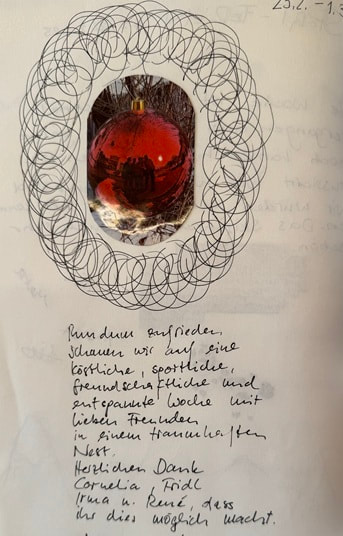 25.2. – 1.3
Rundum zufrieden
schauen wir auf eine
köstliche, sportliche,
freundschaftliche und
entspannte Woche mit
lieben Freunden
in einem traumhaften
Nest.
Herzlichen Dank
Cornelia, Fridl
Irma u. René, dass
ihr dies möglich macht.